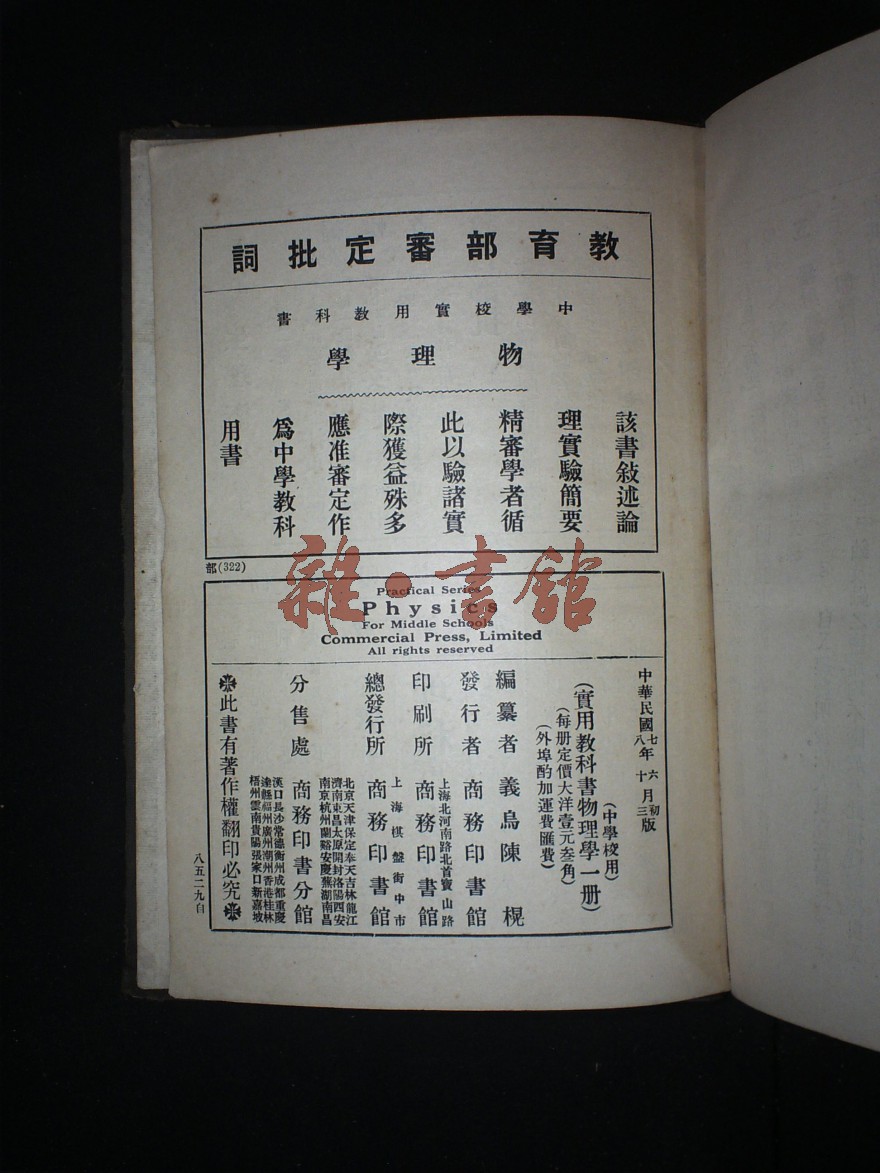 教育部審定批詞
中學校實用教科書
物理學
該書敍述論
理實驗簡要
精審學者循
此以驗諸實
際獲益殊多
應准審定作
爲中學教科
用書
部(322)
Practical Series
Physics
For Middle Schools
Commercial Press, Limited
All rights reserved
中華民國七年六月初版
八年十月三版
(中學校用)
(實用教科書物理學一册)
(每册定價大洋壹元叁角)
(外埠酌加運費匯費)
編纂者 義烏陳榥
發行者 商務印書館
上海北河南路北首寶山路
印刷所 商務印書館
上海棋盤街中市
總發行所 商務印書館
北京天津保定奉天吉林龍江
濟南東昌太原開封洛陽西安
南京杭州蘭谿安慶蕪湖南昌
分售處 商務印書分館
漢口長沙常德衡州成都重慶
達縣福州廣州潮州香港桂林
梧州雲南貴陽張家口新嘉坡
此書有著作權翻印必究
八五二九自
雜·書館